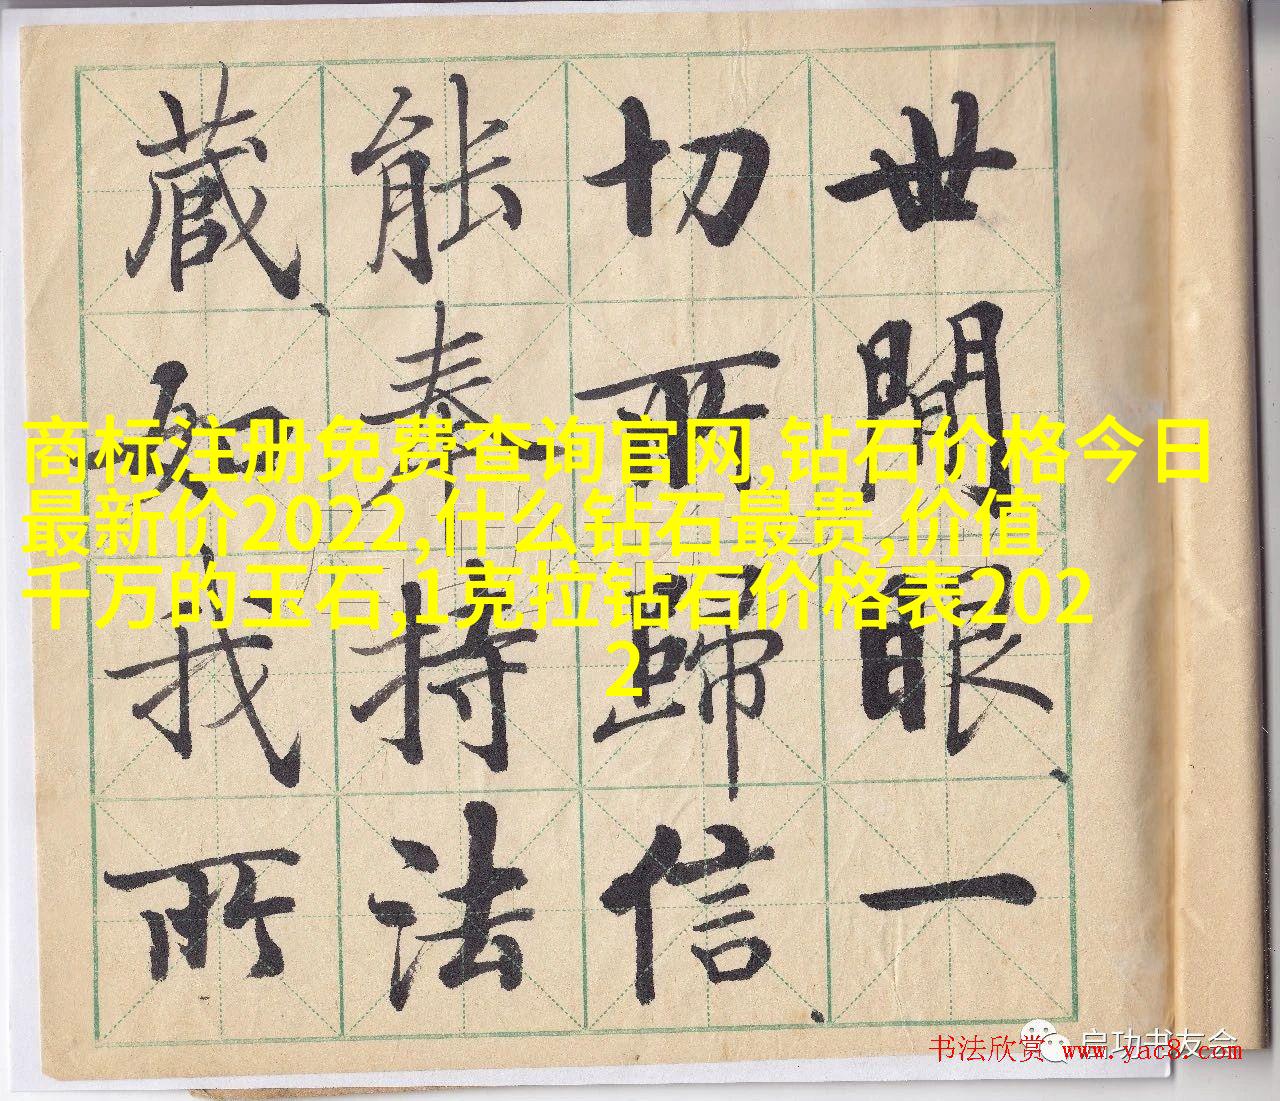 世間眼一
切所歸信
能奉持法
藏如我所
商标注册免费查询官网,钻石价格今日
最新价2022,什么钻石最贵,价值
千万的玉石,1克拉钻石价格表202
2
启功书友会
书法欣赏 www.yac8.com